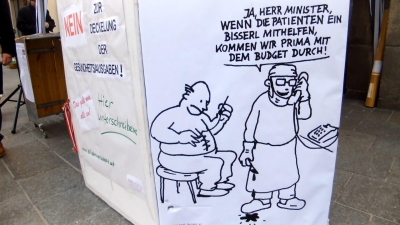 NEIN
ZUR
DECKELUNG
DER
GESUNDHEITSAUSGABEN!
Hier
unterschreiben
JA, HERR MINISTER,
WENN DIE PATIENTEN EIN
BISSERL MITHELFEN,
KOMMEN WIR PRIMA MIT
DEM BUDGET DURCH!